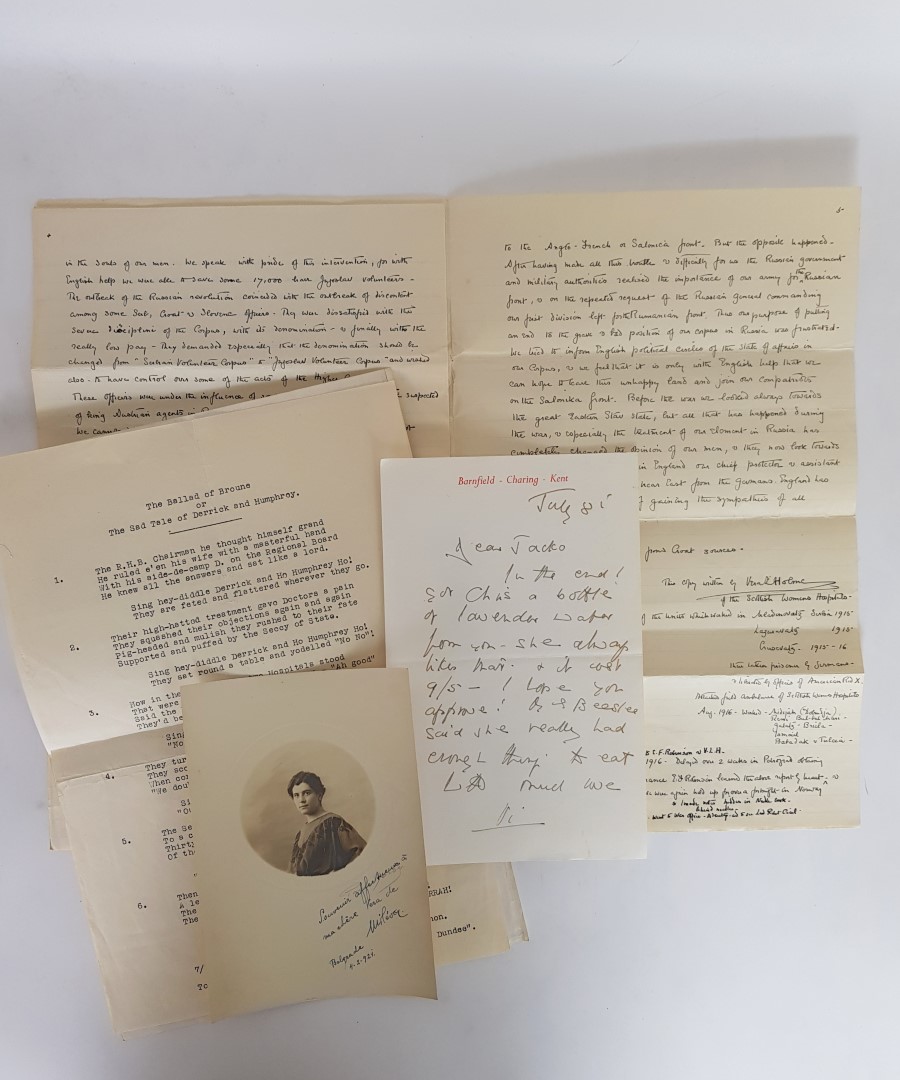 in the souls of our men. We speak with pride of this intervention, for with
English help we were able to save some 17,000 Jugoslav volunteers -
The outbreak of the Russian revolution coincided with the outbreak of discontent
among some Serb, Croat & Slovene officers. They were dissatisfied with the
severe discipline of the Corpus, with its denomination - & finally with the
really low pay - They demanded especially that the denomination should be
changed from "Serbian Volunteer Corpus" to "Jugoslav Volunteer Corpus" and wished
also to have control over some of the acts of the Higher
These officers were under the influence of
suspected
of being Austrian agents in
We cannot
5-
to the Anglo-French or Salonica front. But the opposite happened.
After having made all this trouble & difficulty for us the Russian government
and military authorities realised the importance of our army for the Russian
front, & on the repeated request of the Russian general commanding
our first division left for the Rumanian front. Thus our purpose of putting
an end to the bad position of our corpus in Russia was frustrated.
We tried to inform English political circles of the state of affairs in
our Corpus, & we felt that it is only with English help that we
can hope to leave this unhappy land and join our compatriots
on the Salonika front. Before the war we looked always towards
the great Eastern Slav state, but all that has happened during
the war, & especially the treatment of our element in Russia has
completely changed the opinion of our men, & they now look towards
in England our chief protector & assistant
near East from the Germans. England has
of gaining the sympathies of all
from Croat sources.
This copy written by Vera Holme
of the Scottish Womens Hospitals.
of the Units which waited in Mladenovatz Serbia 1915
Lazarovatz 1915
1915-16
then taken prisoner by Germans -
Field ambulance of Scottish Womens Hospitals
Aug. 1916 -
Galatz - Braila -
Ismail
1916 - Delayed over 2 weeks in Petrograd
The Ballad of Broune
or
The Sad Tale of Derrick and Humphrey.
1. The R.H.B. Chairman he thought himself grand
He ruled e'en his wife with a masterful hand
With his aide-de-camp D. on the Regional Board
He knew all the answers and sat like a lord.
Sing hey-diddle Derrick and Ho Humphrey Ho!
They are feted and flattered wherever they go.
2. Their high-hatted treatment gave Doctors a pain
They squashed their objections again and again
Pig-headed and mulish they rushed to their fate
Supported and puffed by the Seccy of State.
Sing hey-diddle Derrick and Ho Humphrey Ho!
They sat round a table and yodelled "No No"!
3. Now in the
Hospitals stood
That were
"Ah good"
Said the
They'd be
Sing
"No
4. They tur
They sco
When co
"We dou
Si
"O
5. The Se
To a c
Thirty
Of th
6. Then
A le
The
The
7/
To
RRAH!
non.
Dundee".
Barnfield - Charing - Kent
July 8
Dear Jacko
In the end I
got Chris a bottle
of lavender water
from you - she always
likes that. & it cost
9/5 - I hope you
approve!
said she really had
enough things to eat
Di
Souvenir affectueux à
ma chère Vera de
Belgrade